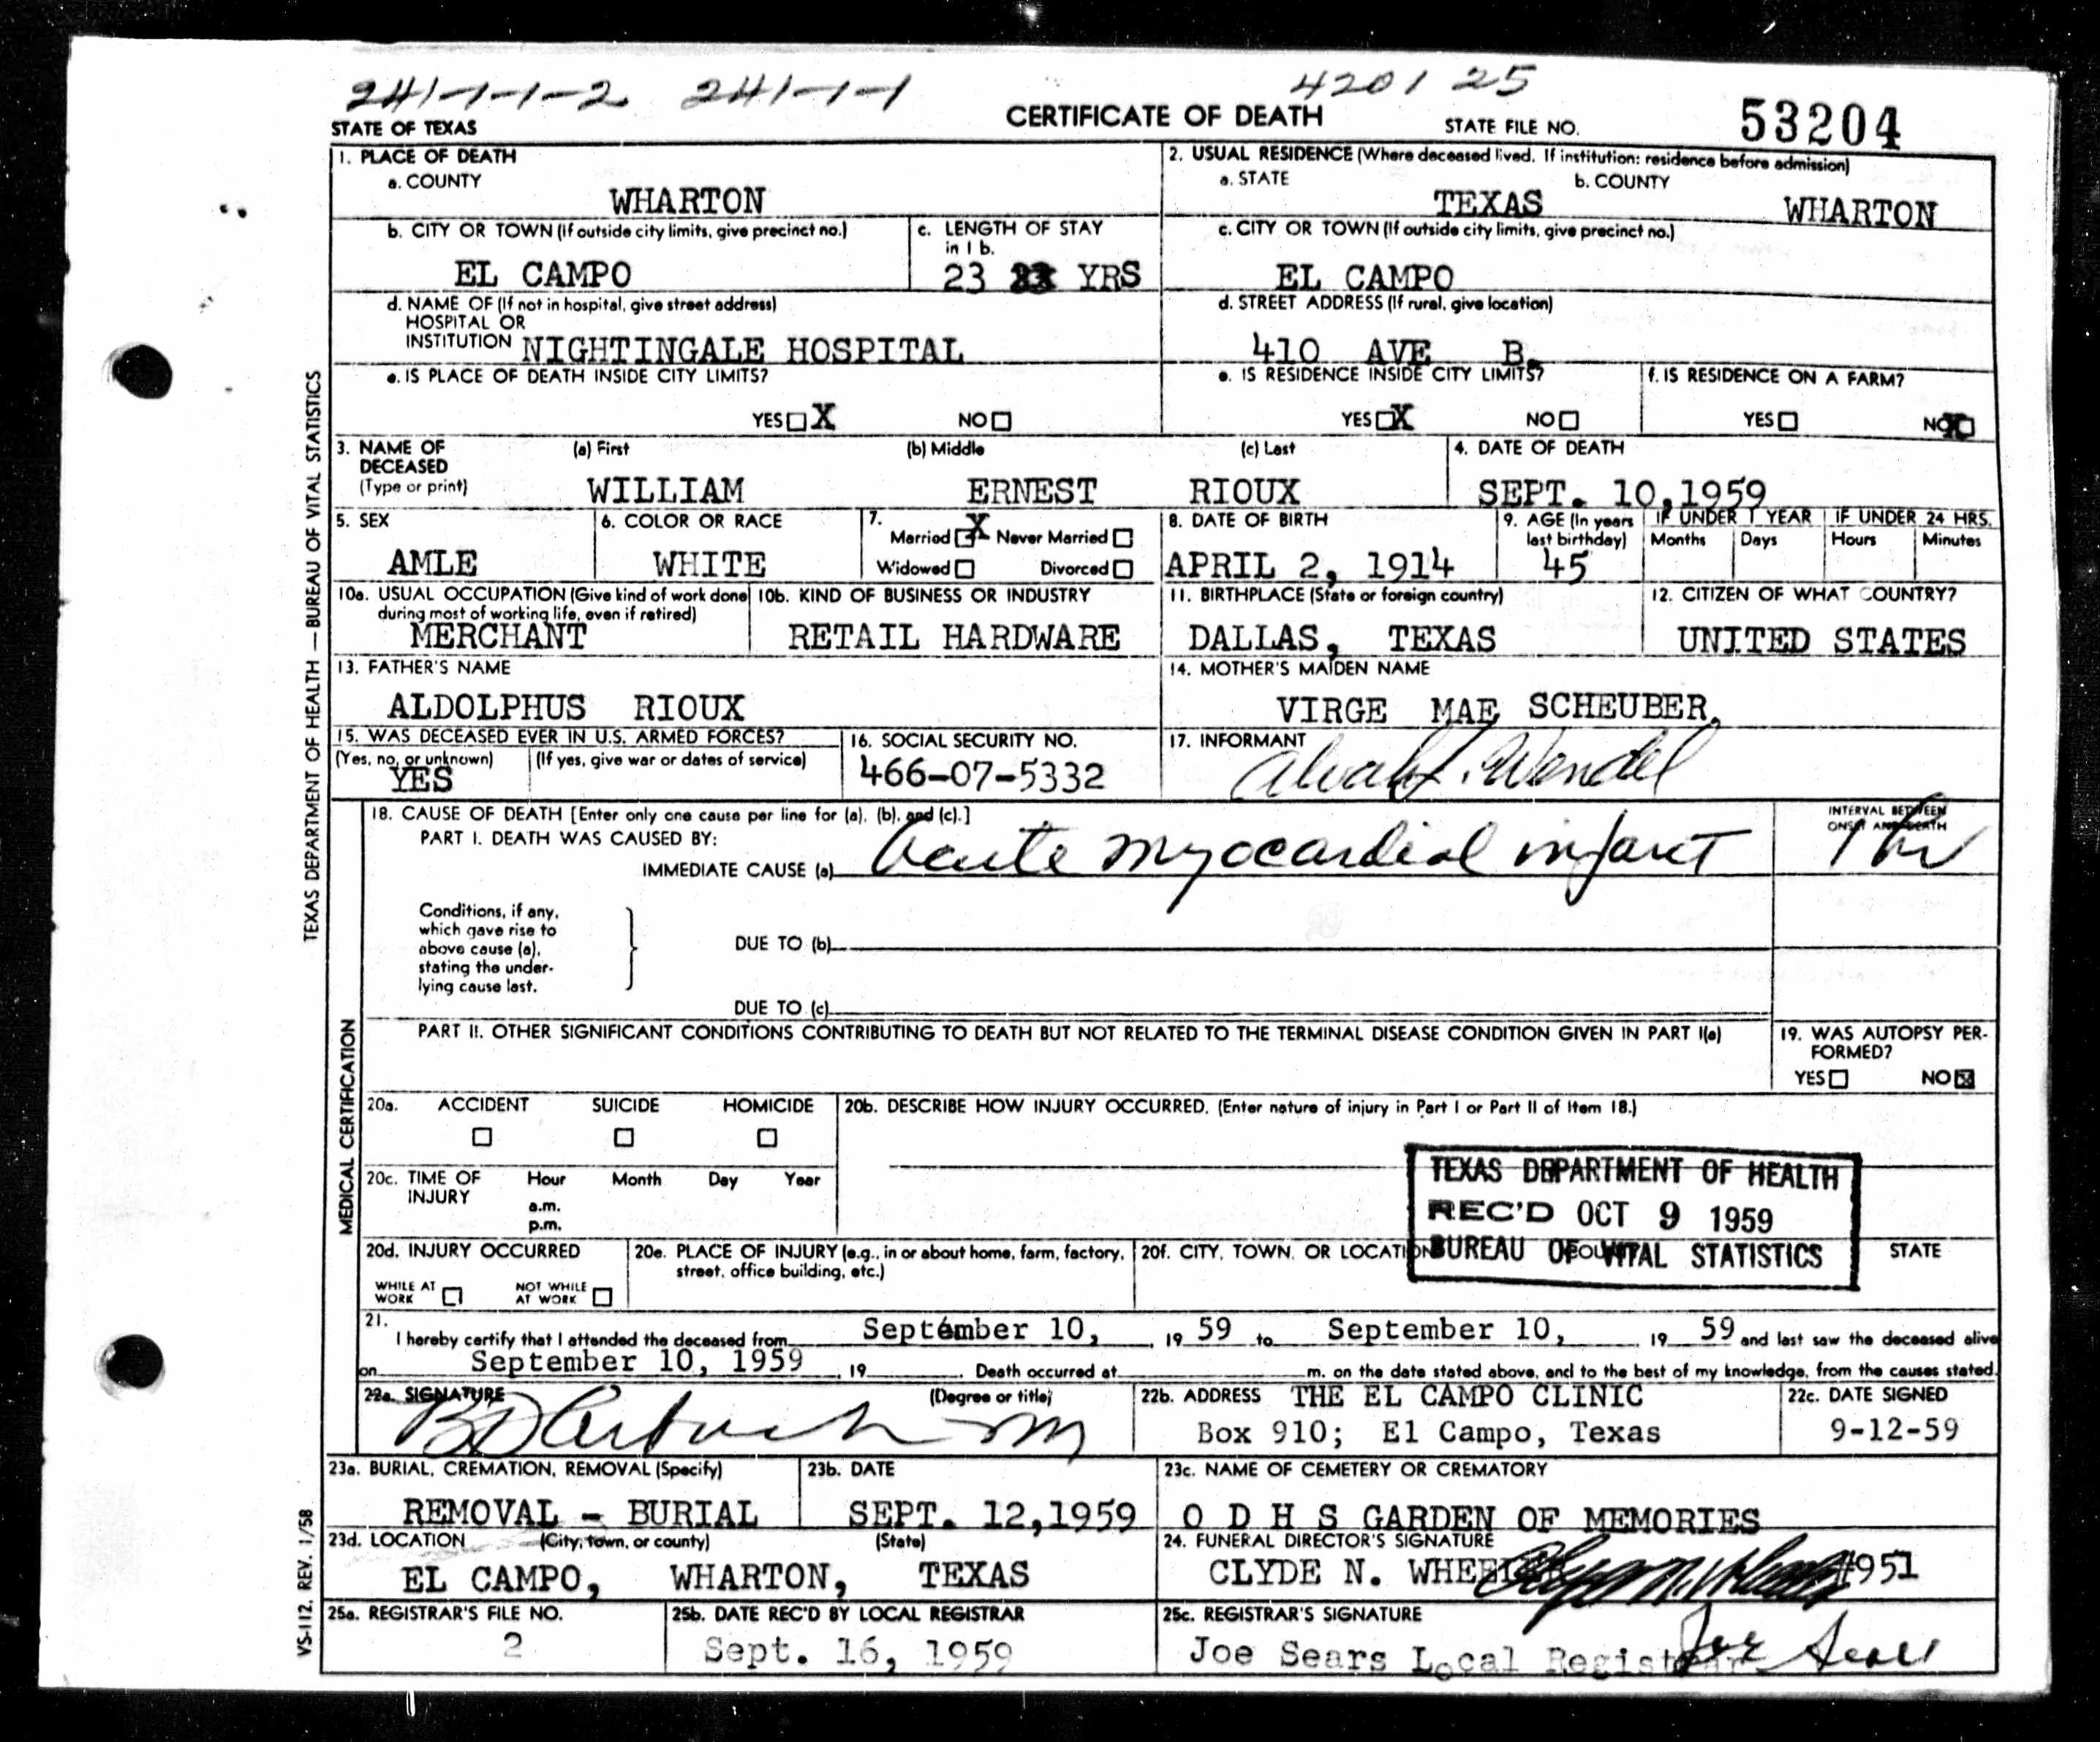 241-1-1-2 241-1-1 4201 25
STATE OF TEXAS CERTIFICATE OF DEATH STATE FILE NO. 53204
1. PLACE OF DEATH
a. COUNTY
WHARTON
2. USUAL RESIDENCE (Where deceased lived. If institution: residence before admission)
a. STATE b. COUNTY
TEXAS WHARTON
b. CITY OR TOWN (If outside city limits, give precinct no.)
EL CAMPO
c. LENGTH OF STAY
in 1 b.
23 YRS
c. CITY OR TOWN (If outside city limits, give precinct no.)
EL CAMPO
d. NAME OF (If not in hospital, give street address)
HOSPITAL OR
INSTITUTION NIGHTINGALE HOSPITAL
d. STREET ADDRESS (If rural, give location)
410 AVE B.
e. IS PLACE OF DEATH INSIDE CITY LIMITS?
YES X NO
e. IS RESIDENCE INSIDE CITY LIMITS?
YES X NO
f. IS RESIDENCE ON A FARM?
YES NO X
3. NAME OF
DECEASED
(Type or print)
(a) First (b) Middle (c) Last
WILLIAM ERNEST RIOUX
4. DATE OF DEATH
SEPT. 10,1959
5. SEX
AMLE
6. COLOR OR RACE
WHITE
7.
Married X Never Married
Widowed Divorced
8. DATE OF BIRTH
APRIL 2, 1914
9. AGE (In years
last birthday)
45
IF UNDER 1 YEAR IF UNDER 24 HRS.
Months Days Hours Minutes
10a. USUAL OCCUPATION (Give kind of work done
during most of working life, even if retired)
MERCHANT
10b. KIND OF BUSINESS OR INDUSTRY
RETAIL HARDWARE
11. BIRTHPLACE (State or foreign country)
DALLAS, TEXAS
12. CITIZEN OF WHAT COUNTRY?
UNITED STATES
13. FATHER'S NAME
ALDOLPHUS RIOUX
14. MOTHER'S MAIDEN NAME
VIRGE MAE SCHEUBER,
15. WAS DECEASED EVER IN U.S. ARMED FORCES?
(Yes, no, or unknown) (If yes, give war or dates of service)
YES
16. SOCIAL SECURITY NO.
466-07-5332
17. INFORMANT
Wendel
18. CAUSE OF DEATH [Enter only one cause per line for (a), (b), and (c).]
PART I. DEATH WAS CAUSED BY:
IMMEDIATE CAUSE (a) Acute myocardial infarct
INTERVAL BETWEEN
ONSET AND DEATH
1 hr
Conditions, if any,
which gave rise to
above cause (a),
stating the under-
lying cause last.
DUE TO (b)
DUE TO (c)
PART II. OTHER SIGNIFICANT CONDITIONS CONTRIBUTING TO DEATH BUT NOT RELATED TO THE TERMINAL DISEASE CONDITION GIVEN IN PART I(a)
19. WAS AUTOPSY PER-
FORMED?
YES NO X
20a. ACCIDENT SUICIDE HOMICIDE
20b. DESCRIBE HOW INJURY OCCURRED. (Enter nature of injury in Part I or Part II of Item 18.)
20c. TIME OF
INJURY
Hour Month Day Year
a.m.
p.m.
TEXAS DEPARTMENT OF HEALTH
REC'D OCT 9 1959
BUREAU OF VITAL STATISTICS
20d. INJURY OCCURRED
WHILE AT
WORK
NOT WHILE
AT WORK
20e. PLACE OF INJURY (e.g., in or about home, farm, factory,
street, office building, etc.)
20f. CITY, TOWN, OR LOCATION COUNTY STATE
21.
I hereby certify that I attended the deceased from September 10, 19 59 to September 10, 19 59 and last saw the deceased alive
on September 10, 1959 19 . Death occurred at m. on the date stated above, and to the best of my knowledge, from the causes stated.
22a. SIGNATURE (Degree or title)
22b. ADDRESS THE EL CAMPO CLINIC
Box 910; El Campo, Texas
22c. DATE SIGNED
9-12-59
23a. BURIAL, CREMATION, REMOVAL (Specify)
REMOVAL - BURIAL
23b. DATE
SEPT. 12,1959
23c. NAME OF CEMETERY OR CREMATORY
O D H S GARDEN OF MEMORIES
23d. LOCATION (City, town, or county) (State)
EL CAMPO, WHARTON, TEXAS
24. FUNERAL DIRECTOR'S SIGNATURE
CLYDE N. WHEELER #951
25a. REGISTRAR'S FILE NO.
2
25b. DATE REC'D BY LOCAL REGISTRAR
Sept. 16, 1959
25c. REGISTRAR'S SIGNATURE
Joe Sears Local Registrar Joe Sears
TEXAS DEPARTMENT OF HEALTH — BUREAU OF VITAL STATISTICS
MEDICAL CERTIFICATION
VS-112. REV. 1/58